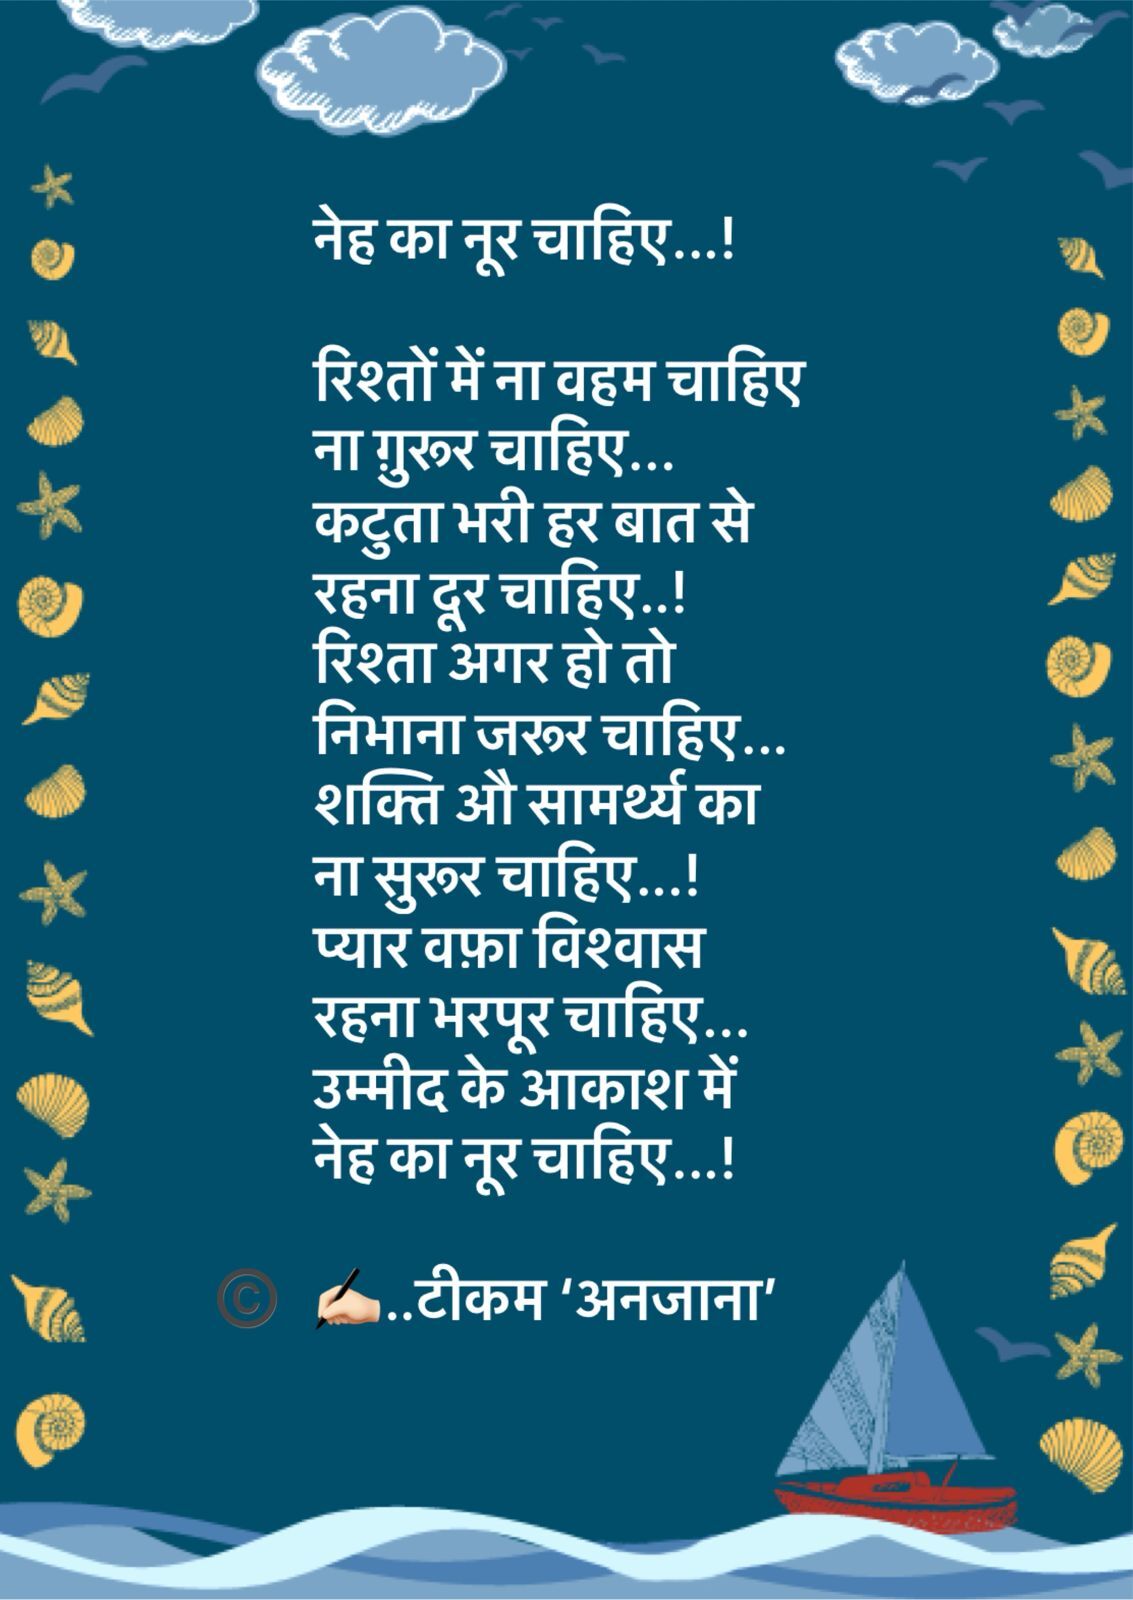 नेह का नूर चाहिए...!
रिश्तों में ना वहम चाहिए
ना ग़ुरूर चाहिए...
कटुता भरी हर बात से
रहना दूर चाहिए..!
रिश्ता अगर हो तो
निभाना जरूर चाहिए...
शक्ति औ सामर्थ्य का
ना सुरूर चाहिए...!
प्यार वफ़ा विश्वास
रहना भरपूर चाहिए...
उम्मीद के आकाश में
नेह का नूर चाहिए...!
© ✍🏻..टीकम ‘अनजाना’